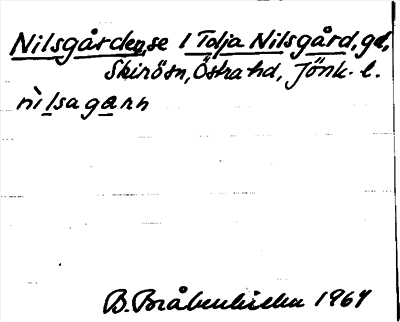 Nilsgården, se 1 Tolja Nilsgård, gd,
Skirö sn, Östra hd, Jönk. l.
nìlsagaɲn
B. 1967